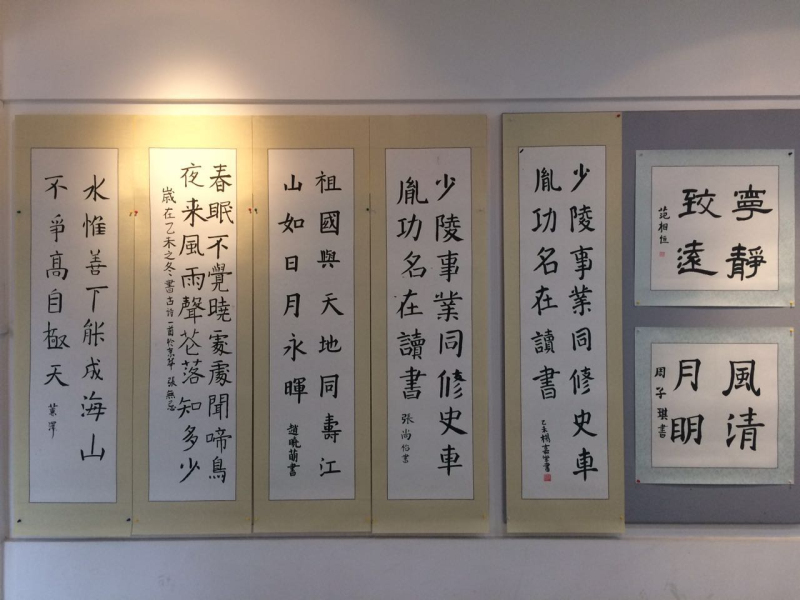 水惟善下能成海山
不爭高自極天
葉澤
春眠不覺曉處處聞啼鳥
夜来風雨聲花落知多少
歲在乙未之冬書古詩一首於京華 張無忌
祖國與天地同壽江
山如日月永暉
趙曉萌書
少陵事業同修史車
胤功名在讀書
張尚怡書
少陵事業同修史車
胤功名在讀書
寧靜
致遠
風清
月明
周子琪書